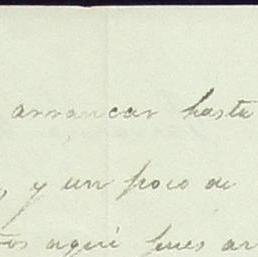 arrancar hasta
y un poco de
aquí pues